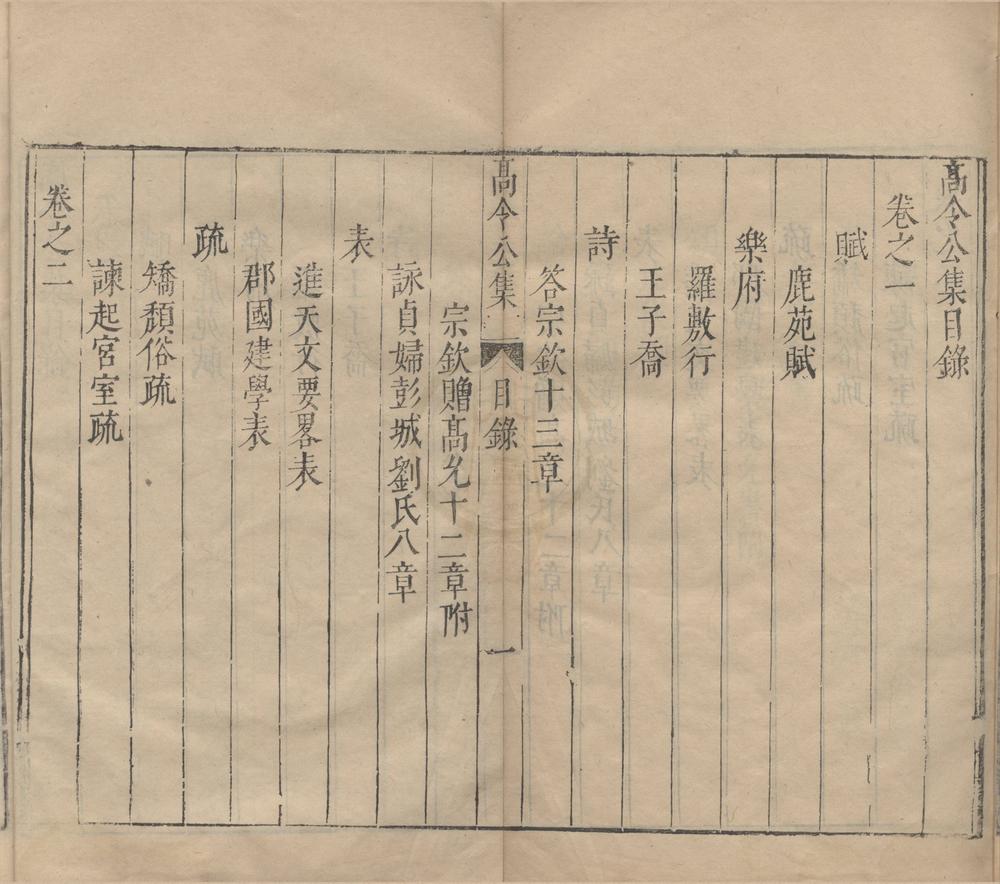 高令公集目錄
卷之一
賦
鹿苑賦
樂府
羅敷行
王子喬
詩
答宗欽十三章
高令公集 目錄 一
宗欽贈高允十二章附
詠貞婦彭城劉氏八章
表
進天文要畧表
郡國建學表
疏
矯頹俗疏
諫起宮室疏
卷之二